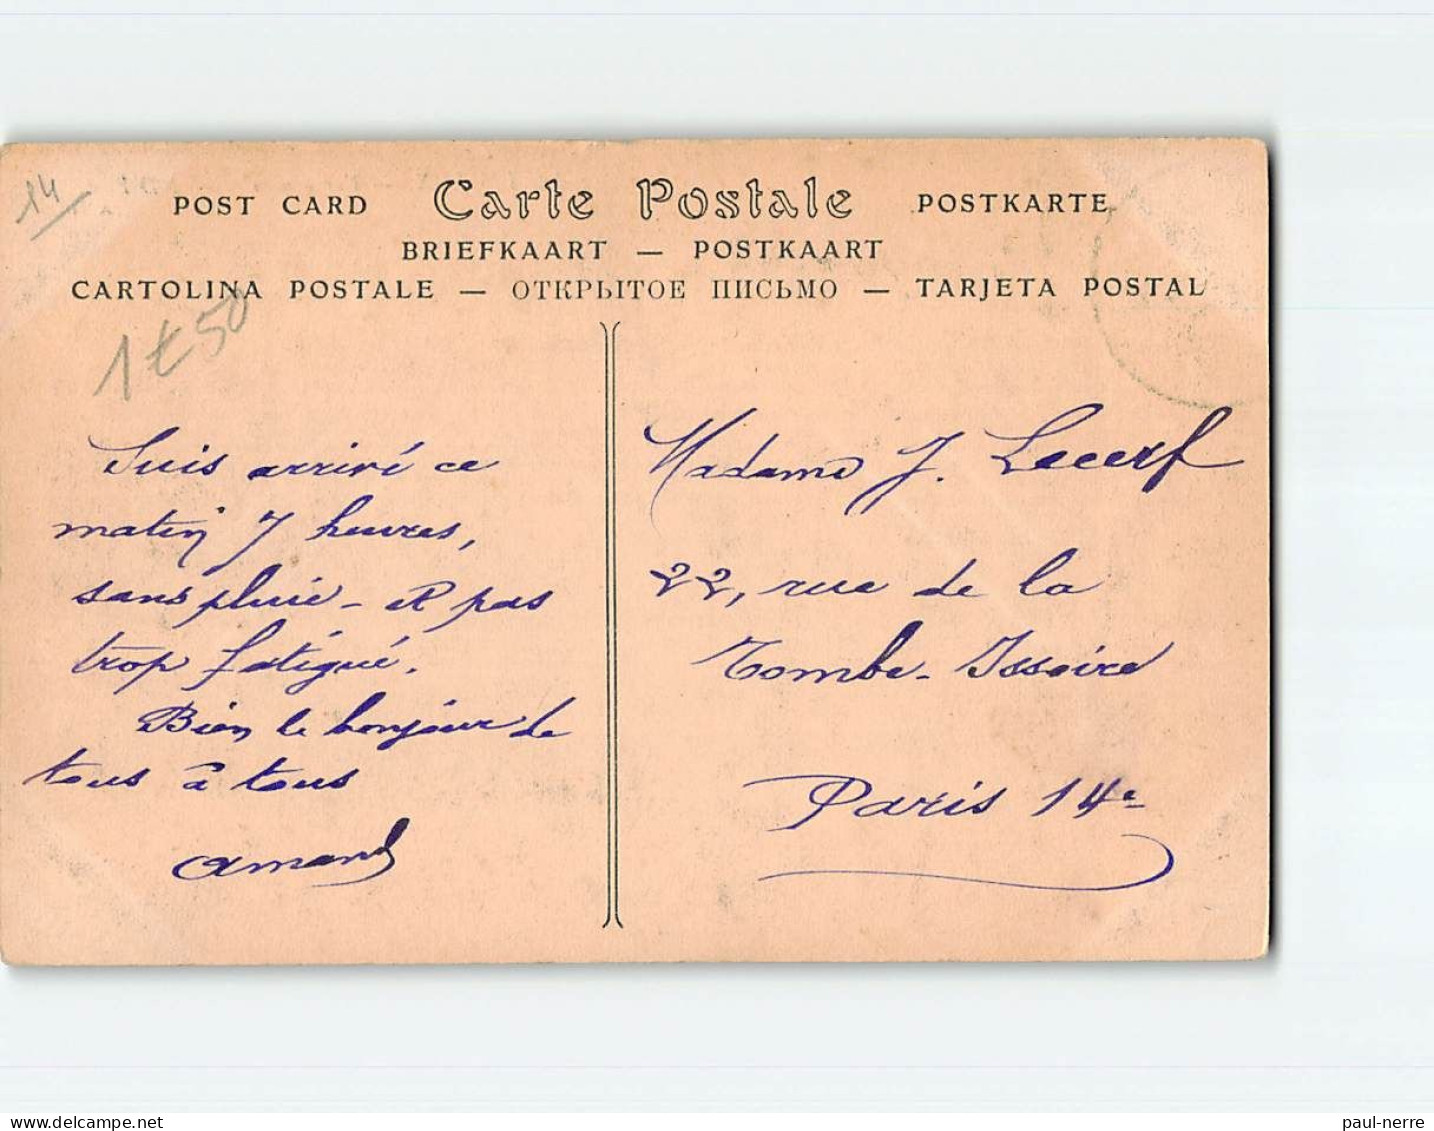 14
POST CARD Carte Postale POSTKARTE
BRIEFKAART — POSTKAART
CARTOLINA POSTALE — ОТКРЫТОЕ ПИСЬМО — TARJETA POSTAL
1€50
Suis arrivé ce
matin 7 heures,
sans pluie - et pas
trop fatigué.
Bien le bonjour de
tous à tous
Amand
Madame J. Lecerf
22, rue de la
Tombe-Issoire
Paris 14e
delcampe.net
paul-nerre